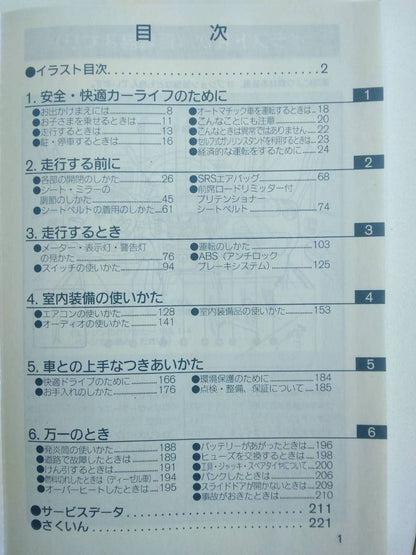 目 次
●イラスト目次 2
1. 安全・快適カーライフのために 1
●お出かけまえには 8
●お子さまを乗せるときは 11
●走行するときは 13
●駐・停車するときは 16
●オートマチック車を運転するときは 18
●こんなことにも注意 20
●こんなときは異常ではありません 22
●セルフ式ガソリンスタンドを利用するときは 23
●経済的な運転をするために 24
2. 走行する前に 2
●各部の開閉のしかた 26
●シート・ミラーの
調節のしかた 45
●シートベルトの着用のしかた 61
●SRSエアバッグ 68
●前席ロードリミッター付
プリテンショナー
シートベルト 74
3. 走行するとき 3
●メーター・表示灯・警告灯
の見かた 76
●スイッチの使いかた 94
●運転のしかた 103
●ABS（アンチロック
ブレーキシステム） 125
4. 室内装備の使いかた 4
●エアコンの使いかた 128
●オーディオの使いかた 141
●室内装備品の使いかた 153
5. 車との上手なつきあいかた 5
●快適ドライブのために 166
●お手入れのしかた 176
●環境保護のために 184
●点検・整備、保証について 185
6. 万一のとき 6
●発炎筒の使いかた 188
●道路で故障したときは 189
●けん引するときは 191
●燃料切れしたときは（ディーゼル車） 194
●オーバーヒートしたときは 195
●バッテリーがあがったときは 196
●ヒューズを交換するときは 198
●工具・ジャッキ・スペアタイヤについて 200
●パンクしたときは 206
●スライドドアが開かないときは 209
●事故がおきたときは 210
●サービスデータ 211
●さくいん 221
1